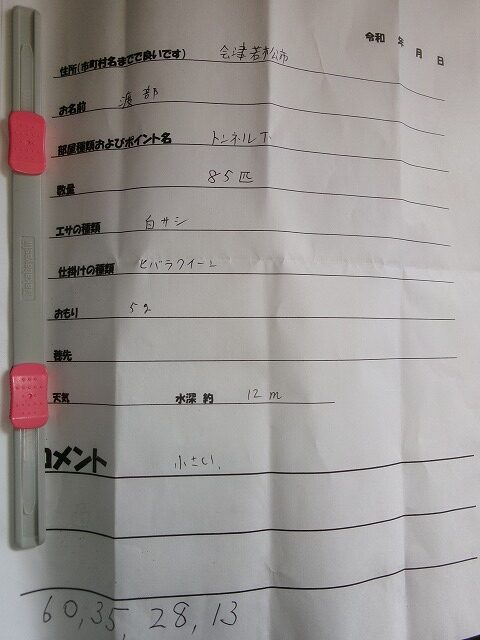 令和 年 月 日
住所(市町村名までで良いです) 会津若松市
お名前 渡部
部屋種類およびポイント名 トンネル下
数量 85匹
エサの種類 白サシ
仕掛けの種類 ヒバラクイーン
おもり 5g
穂先
天気 水深 約 12m
コメント 小さい、
60,35,28,13